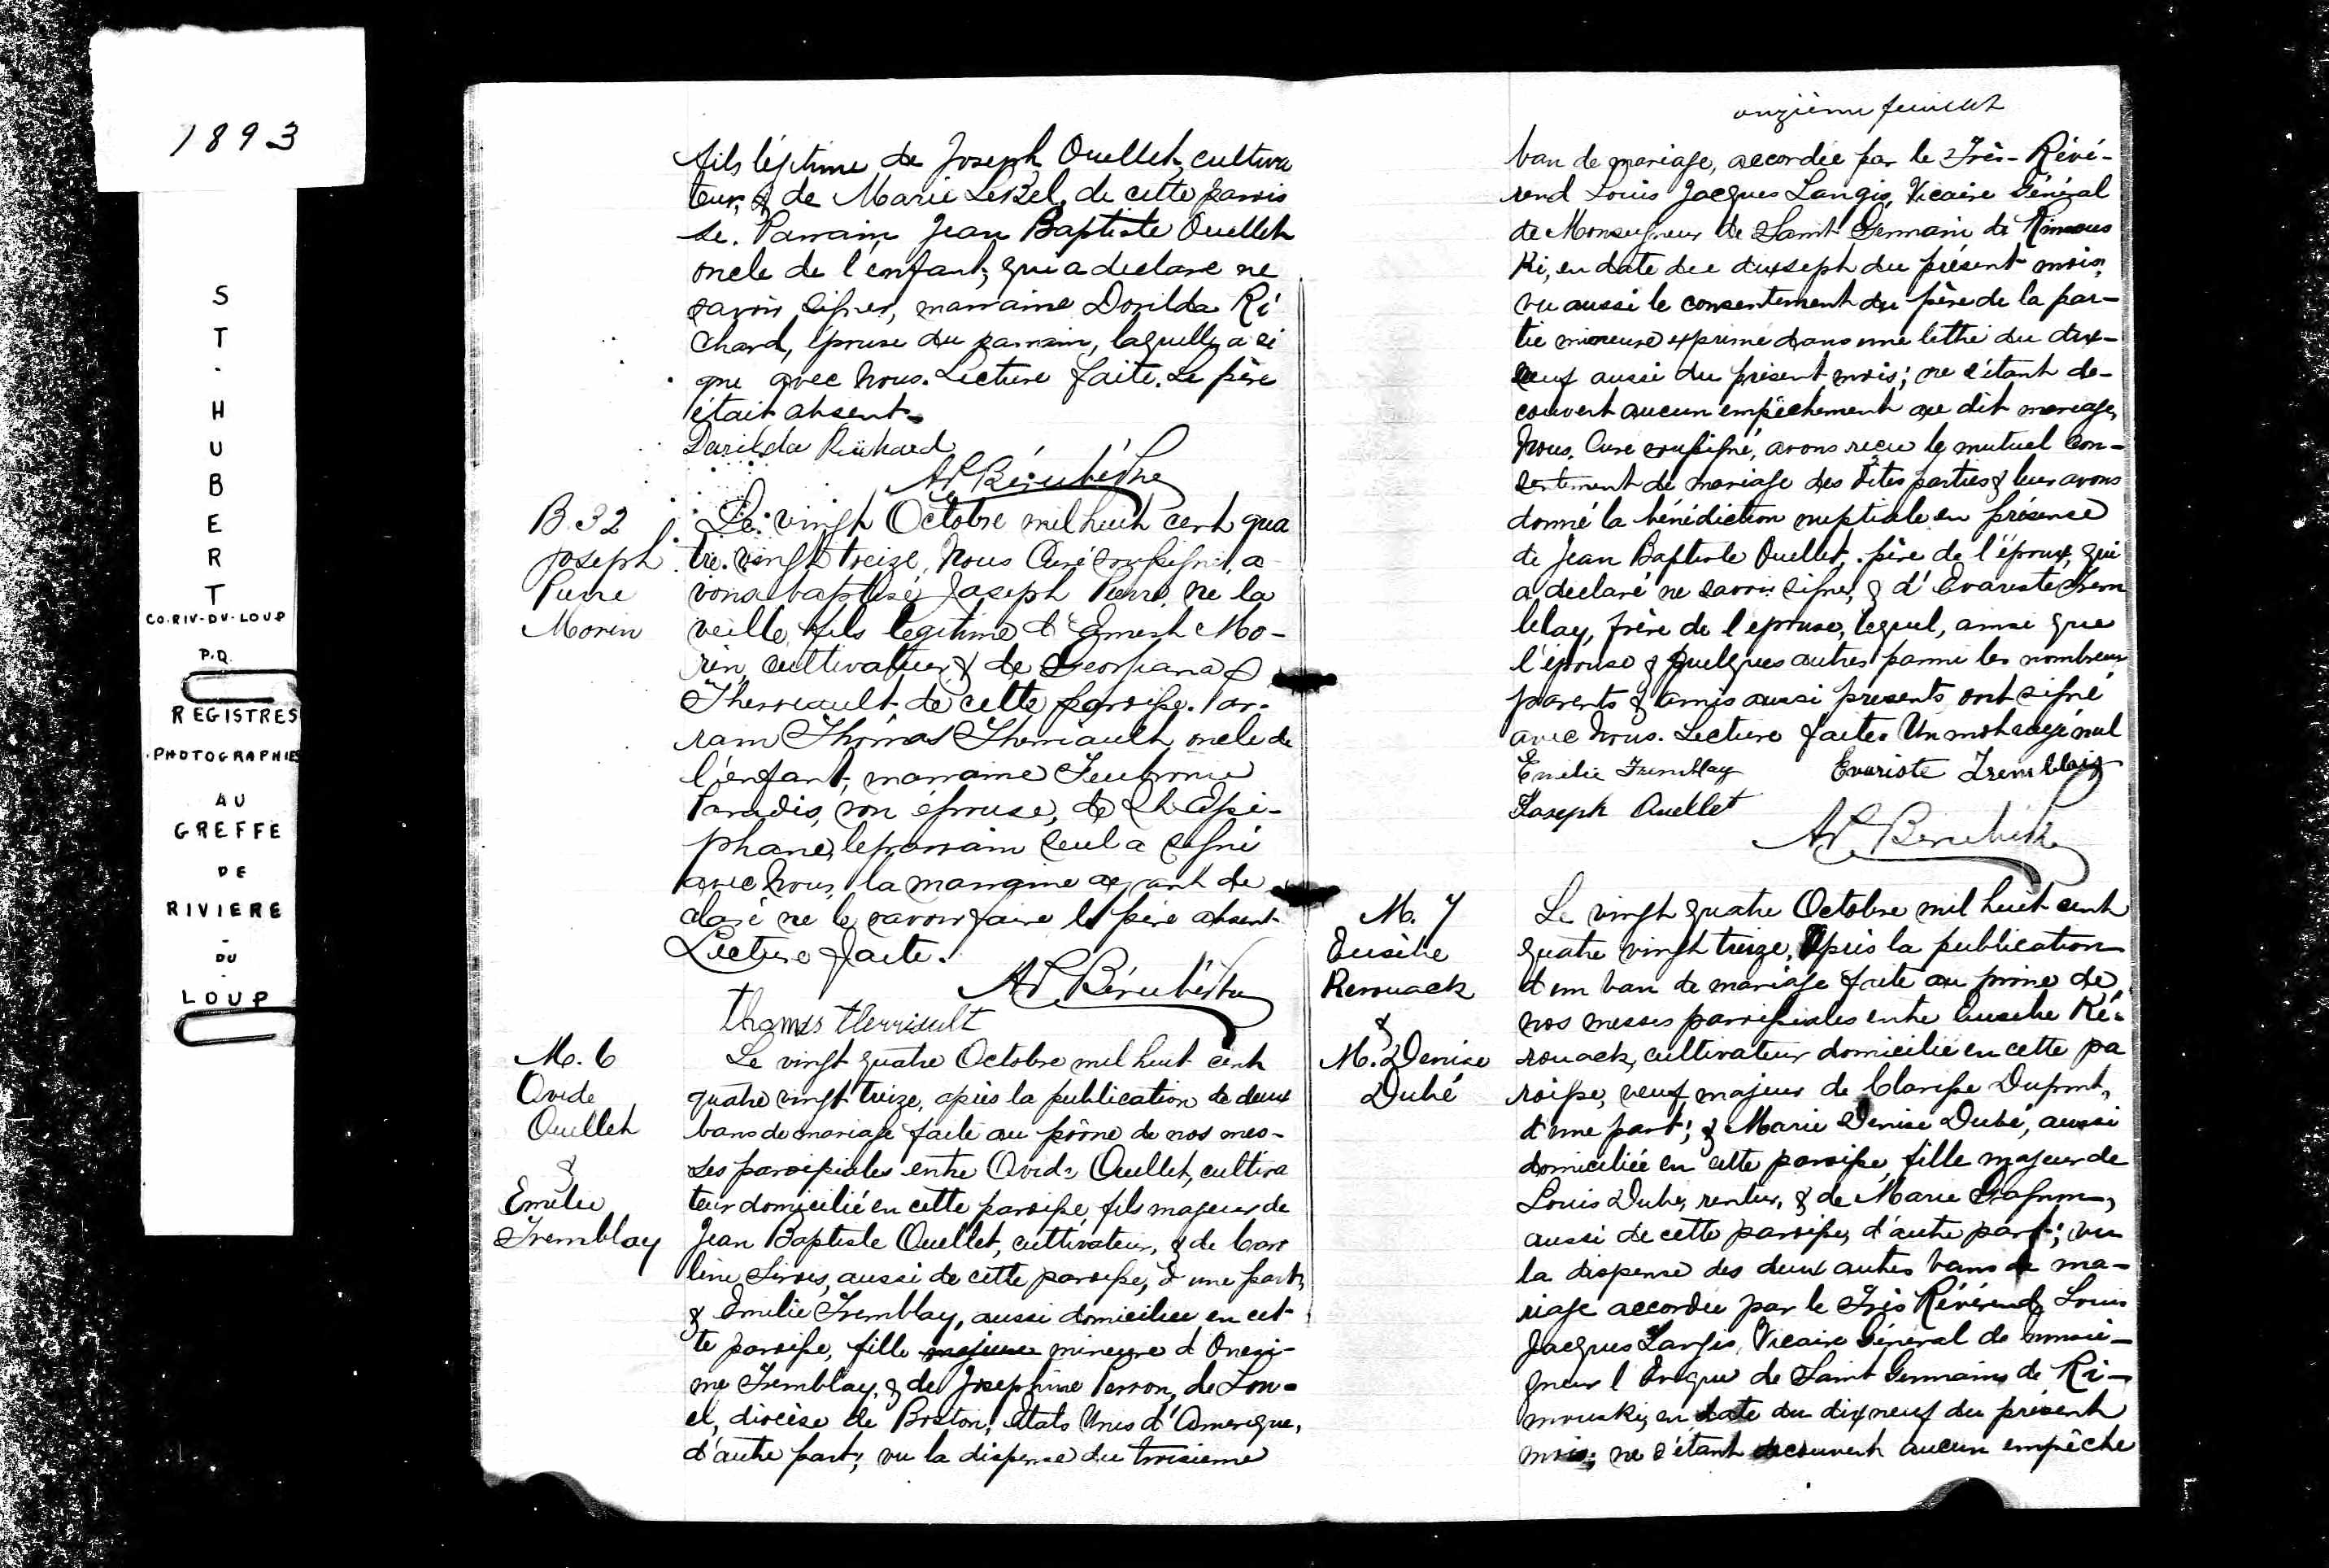 1893
ST. HUBERT
CO. RIV-DU-LOUP
P.Q.
REGISTRES
PHOTOGRAPHIES
AU
GREFFE
DE
RIVIERE
-
DU
-
LOUP
fils légitime de Joseph Ouellet, cultiva
teur, & de Marie LeBel, de cette parois
se. Parrain Jean Baptiste Ouellet
oncle de l'enfant, qui a declaré ne
savoir signer, marraine Dorilda Ri
chard, épouse du parrain, laquelle a si
gné avec nous. Lecture faite. Le père
était absent.
Darilda Richard
Bérubé Ptre
B. 32
Joseph
Pierre
Morin
Le vingt Octobre mil huit cent qua
tre-vingt treize, Nous Curé soussigné, a-
vons baptisé Joseph Pierre, né la
veille, fils légitime d'Ernest Mo-
rin, cultivateur, & de Georgiana
Therreault de cette paroisse. Par-
rain Thomas Therriault oncle de
l'enfant, marraine
Paradis, son épouse, de St Epi-
phane, le parrain seul a signé
avec nous, la marraine ayant dé
claré ne le savoir faire le père absent
Lecture faite.
Bérubé Ptre
Thomas Therriault
M. 6
Ovide
Ouellet
&
Emélie
Tremblay
Le vingt quatre Octobre mil huit cent
quatre vingt treize, après la publication de deux
bans de mariage faite au prône de nos mes-
ses paroissiales entre Ovide Ouellet, cultiva
teur domicilié en cette paroisse, fils majeur de
Jean Baptiste Ouellet, cultivateur, & de Caro
line Sirois, aussi de cette paroisse, d'une part,
& Emélie Tremblay, aussi domiciliée en cet-
te paroisse, fille majeure mineure d'Onesi-
me Tremblay, & de Josephine Perron, de Low-
el, diocèse de Boston, Etats Unis d'Amerique,
d'autre part; vu la dispense du troisieme
onzième feuillet
ban de mariage, accordée par le Très-Révé-
rend Louis Jacques Langis, Vicaire Général
de Monseigneur de Saint Germain de Rimous
ki, en date du dixsept du présent mois,
vu aussi le consentement du père de la par-
tie mineure exprimé dans une lettre du dix-
neuf aussi du présent mois; ne s'étant dé-
couvert aucun empêchement au dit mariage,
Nous, Curé soussigné, avons reçu le mutuel con-
sentement de mariage des dites parties & leur avons
donné la bénédiction nuptiale en présence
de Jean Baptiste Ouellet, père de l'époux, qui
a declaré ne savoir signer, & d'Evariste Trem
blay, frère de l'épouse, lequel, ainsi que
l'épouse & quelques autres parmi les nombreux
parents & amis aussi presents ont signé
avec nous. Lecture faite. Un mot rayé nul
Emélie Tremblay Evariste Tremblay
Joseph Ouellet
Bérubé Ptre
M. 7
Eusèbe
Kerouack
&
M. Denise
Dubé
Le vingt quatre Octobre mil huit cent
quatre vingt treize, Après la publication
d'un ban de mariage faite au prône de
nos messes paroissiales entre Eusèbe Ké-
rouack, cultivateur domicilié en cette pa
roisse, veuf majeur de Clarisse Dupont,
d'une part; & Marie Denise Dubé, aussi
domiciliée en cette paroisse, fille majeure de
Louis Dubé, rentier, & de Marie Gagnon,
aussi de cette paroisse, d'autre part; vu
la dispense des deux autres bans de ma-
riage accordée par le Très Révérend Louis
Jacques Langis, Vicaire Général de Monsei-
gneur l'Evêque de Saint Germain de Ri-
mouski, en date du dixneuf du présent
mois; ne s'étant découvert aucun empêche